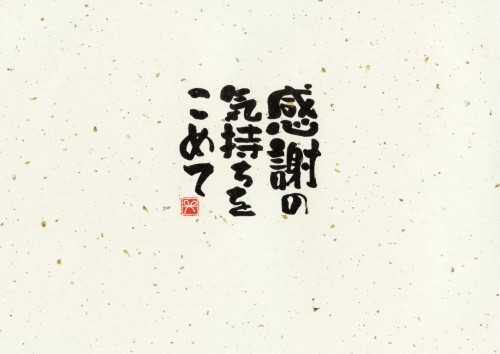 感謝の
気持ちを
こめて